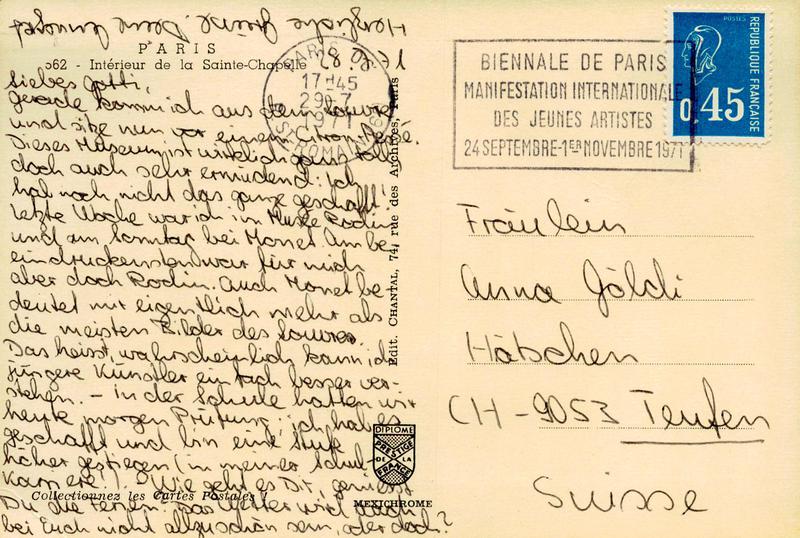 Herzliche Grüsse. Deine
PARIS
562 - Intérieur de la Sainte-Chapelle
Liebes Gotti,
gerade komm ich aus dem Louvre
und sitz nun vor einem Citron Pressé.
Dieses Museum ist wirklich ganz toll,
doch auch sehr ermüdend: ich
hab noch nicht das ganze geschafft!
letzte Woche war ich im Musée Rodin
und am Sonntag bei Monet. Am be-
eindruckensten war für mich
aber doch Rodin. Auch Monet be-
deutet mir eigentlich mehr als
die meisten Bilder des Louvres.
Das heisst, wahrscheinlich kann ich
jüngere Künstler einfach besser ver-
stehen. - In der Schule hatten wir
heute morgen Prüfung: ich hab es
geschafft und bin eine Stufe
höher gestiegen (in meiner Schul-
karriere!). Wie geht es Dir, geniesst
Du die Ferien? Das Wetter wird auch
bei Euch nicht allzuschön sein, oder doch?
Collectionnez les Cartes Postales !
Edit. CHANTAL, 74, rue des Archives, Paris
DIPLOME
PRESTIGE
DE LA
FRANCE
MEXICHROME
PARIS
17H45
29-7
BIENNALE DE PARIS
MANIFESTATION INTERNATIONALE
DES JEUNES ARTISTES
24 SEPTEMBRE-1ER NOVEMBRE 1971
POSTES
REPUBLIQUE FRANÇAISE
0,45
Fräulein
Anna Göldi
Hätschen
CH-9053 Teufen
Suisse